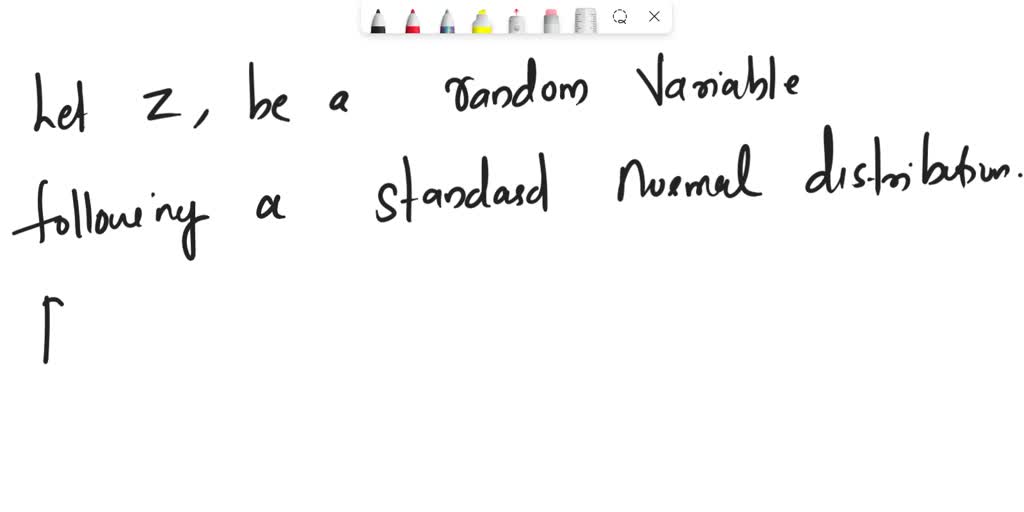 Let Z, be a random Variable
following a standard normal distribution.